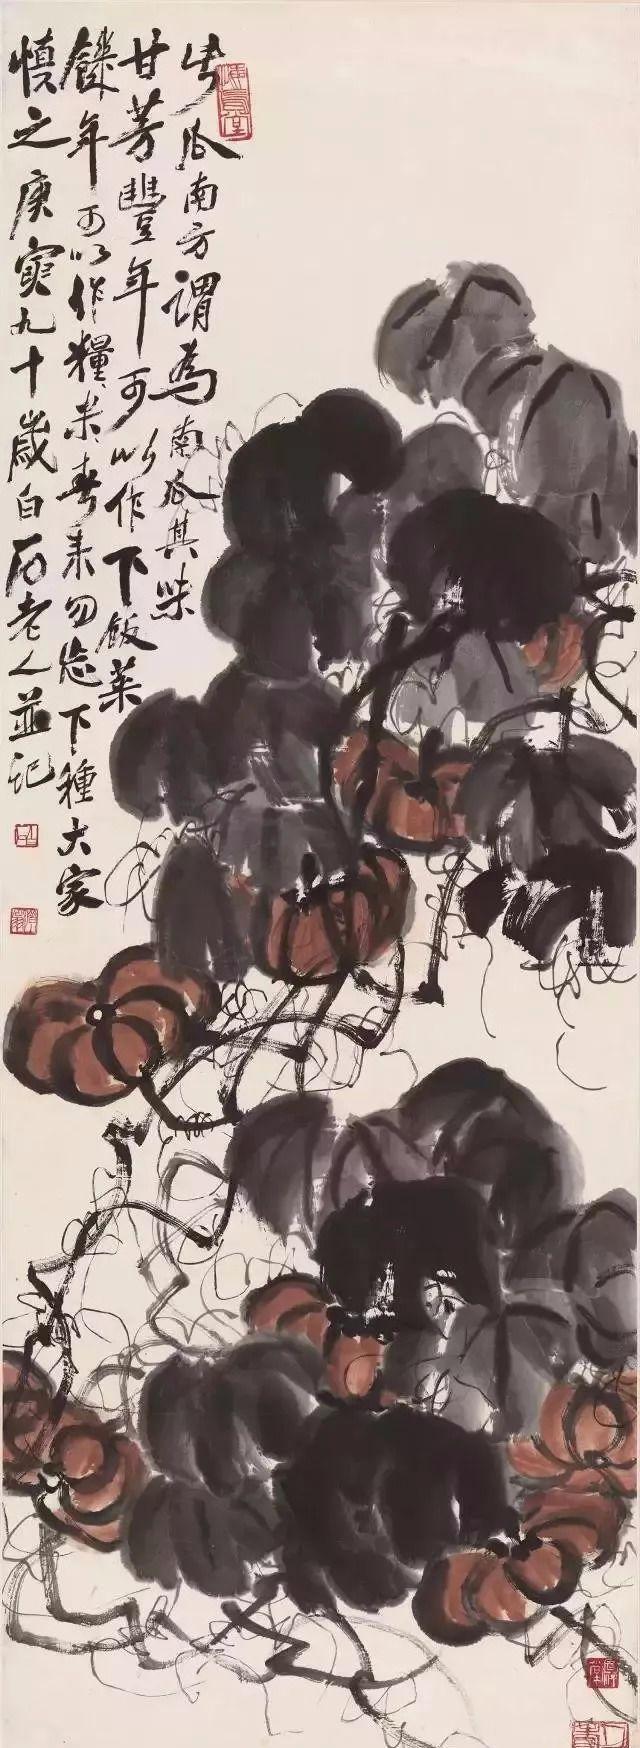 此瓜南方謂為南瓜其味
甘芳豐年可以作下飯菜
饑年可以作糧米春来勿忘下種大家
慎之庚寅九十歲白石老人並記
悔烏堂